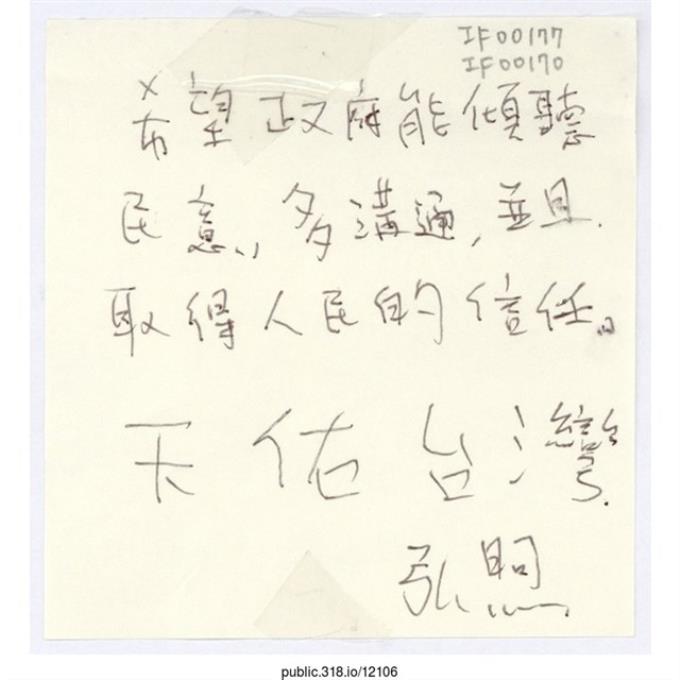 IF00177
IF00170
希望政府能傾聽
民意,多溝通,並且
取得人民的信任。
天佑台灣
弘煦
public.318.io/12106